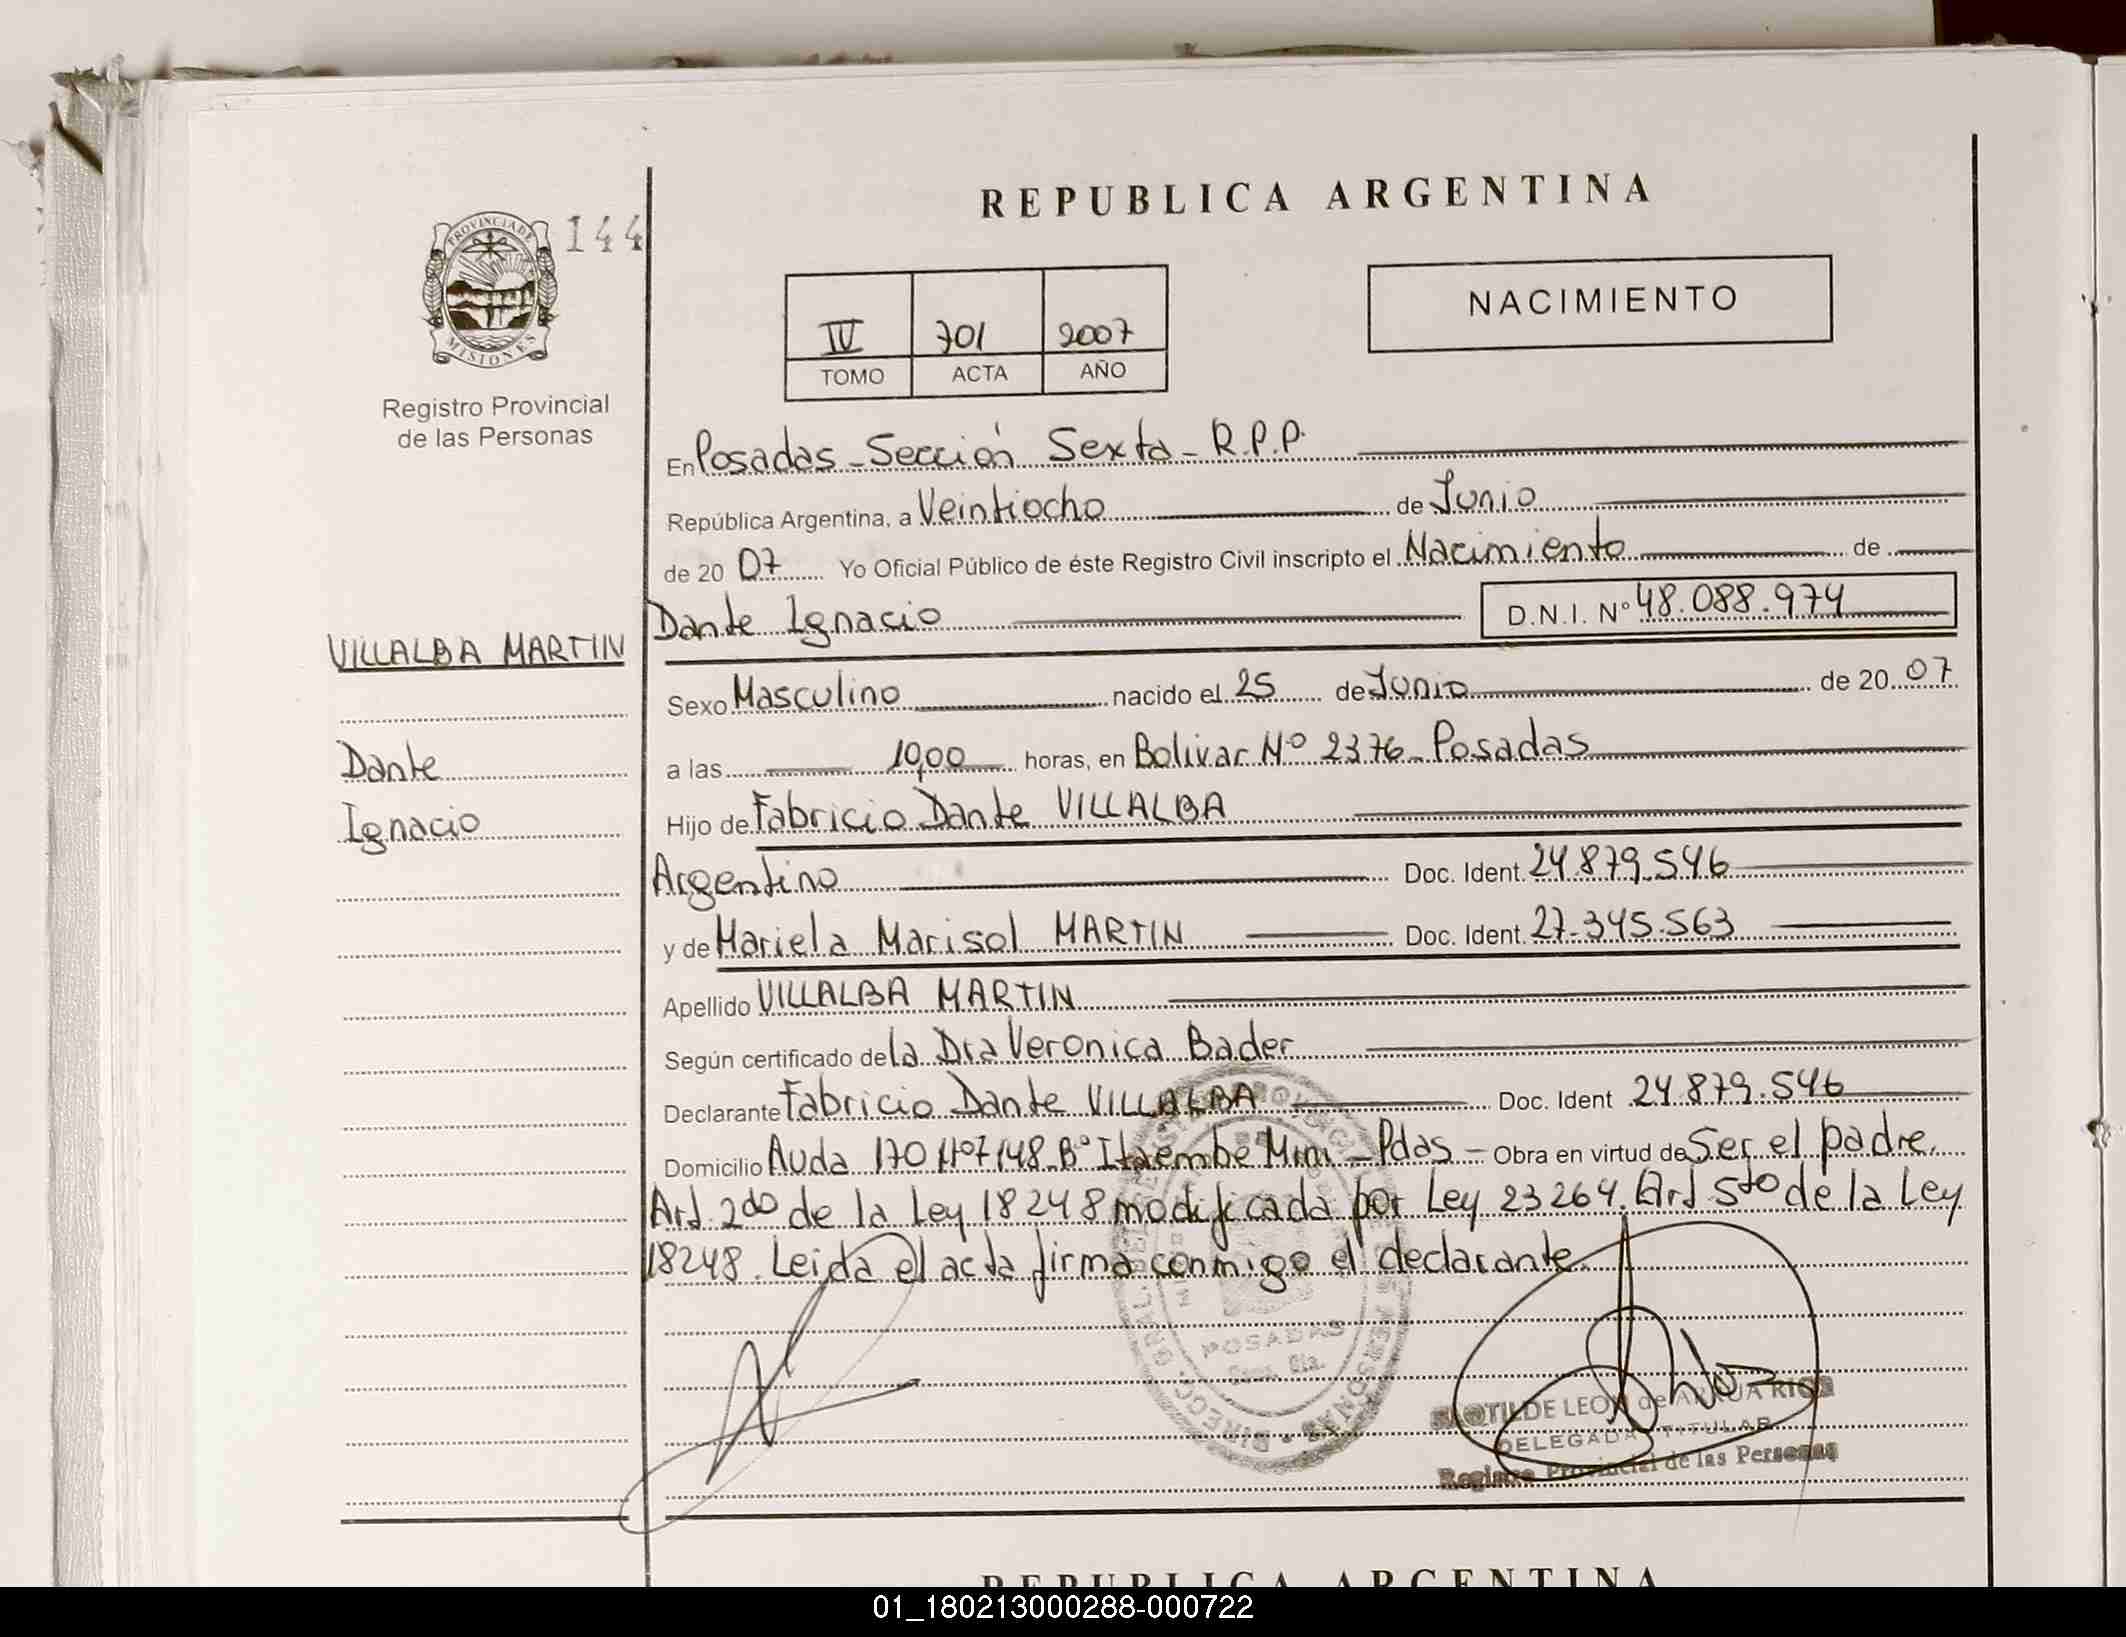 REPUBLICA ARGENTINA
PROVINCIA DE
MISIONES
144
Registro Provincial
de las Personas
NACIMIENTO
IV 701 2007
TOMO ACTA AÑO
En Posadas - Sección Sexta - R.P.P.
República Argentina, a Veintiocho de Junio
de 20 07 Yo Oficial Público de éste Registro Civil inscripto el Nacimiento de
Dante Ignacio D.N.I. Nº 48.088.974
VILLALBA MARTIN
Sexo Masculino nacido el 25 de Junio de 20 07
Dante
a las 10,00 horas, en Bolivar Nº 2376 - Posadas
Ignacio
Hijo de Fabricio Dante VILLALBA
Argentino Doc. Ident. 24.879.546
y de Mariela Marisol MARTIN Doc. Ident. 27.345.563
Apellido VILLALBA MARTIN
Según certificado de la Dra Veronica Bader
Declarante Fabricio Dante VILLALBA Doc. Ident 24.879.546
Domicilio Avda 170 Nº 7148 - Bº Itaembe Mini - Pdas - Obra en virtud de Ser el padre.
Art. 2do de la Ley 18248 modificada por Ley 23264. Art 5to de la Ley
18248. Leida el acta firma conmigo el declarante.
POSADAS
DELEGADA TITULAR
Registro Provincial de las Personas
REPUBLICA ARGENTINA
01_180213000288-000722